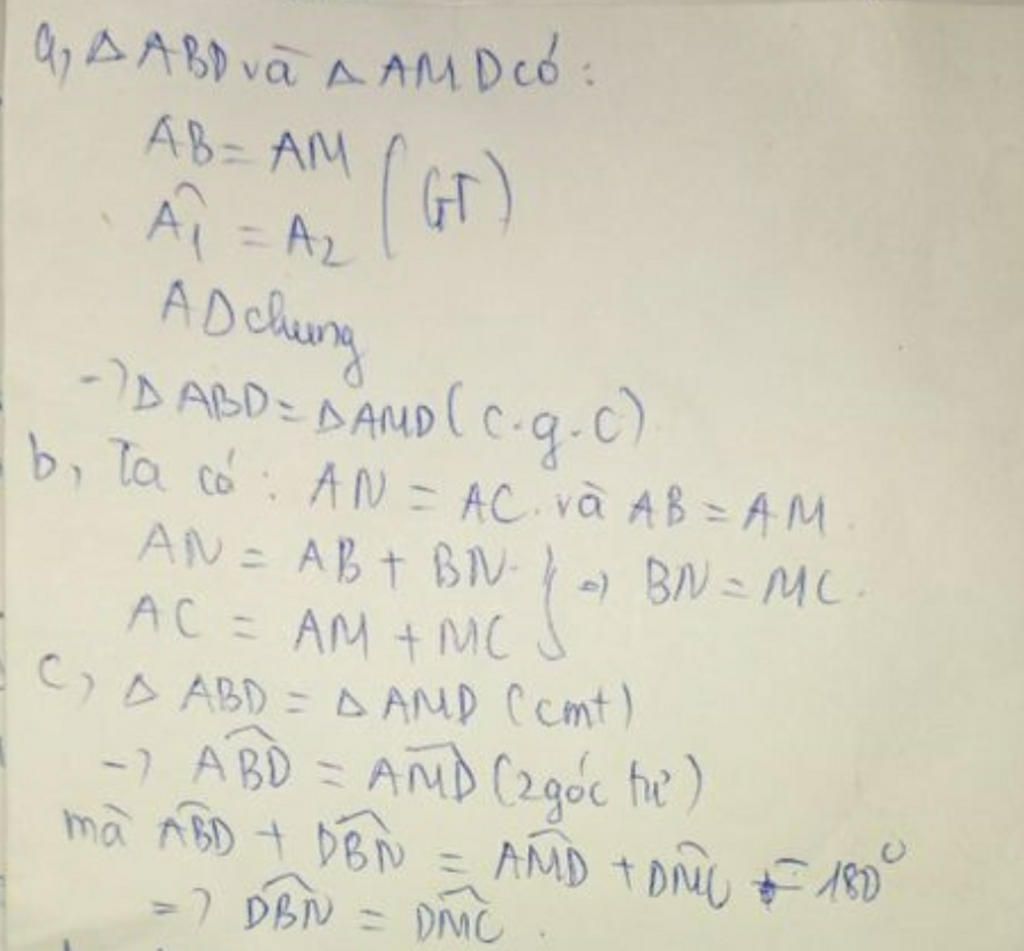 a, Δ ABD và Δ AMD có:
AB = AM
(GT)
Â₁ = A₂
AD chung
-> Δ ABD = Δ AMD (c.g.c)
b, Ta có: AN = AC. và AB = AM.
AN = AB + BN.
} => BN = MC.
AC = AM + MC
c, Δ ABD = Δ AMD (cmt)
-> ABD̂ = AMD̂ (2 góc tư)
mà ABD̂ + DBN̂ = AMD̂ + DMĈ = 180⁰
=> DBN̂ = DMĈ.